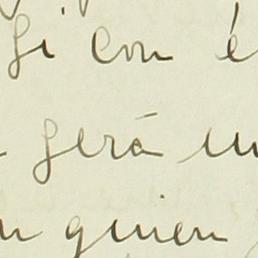 Si con é
será un
quien